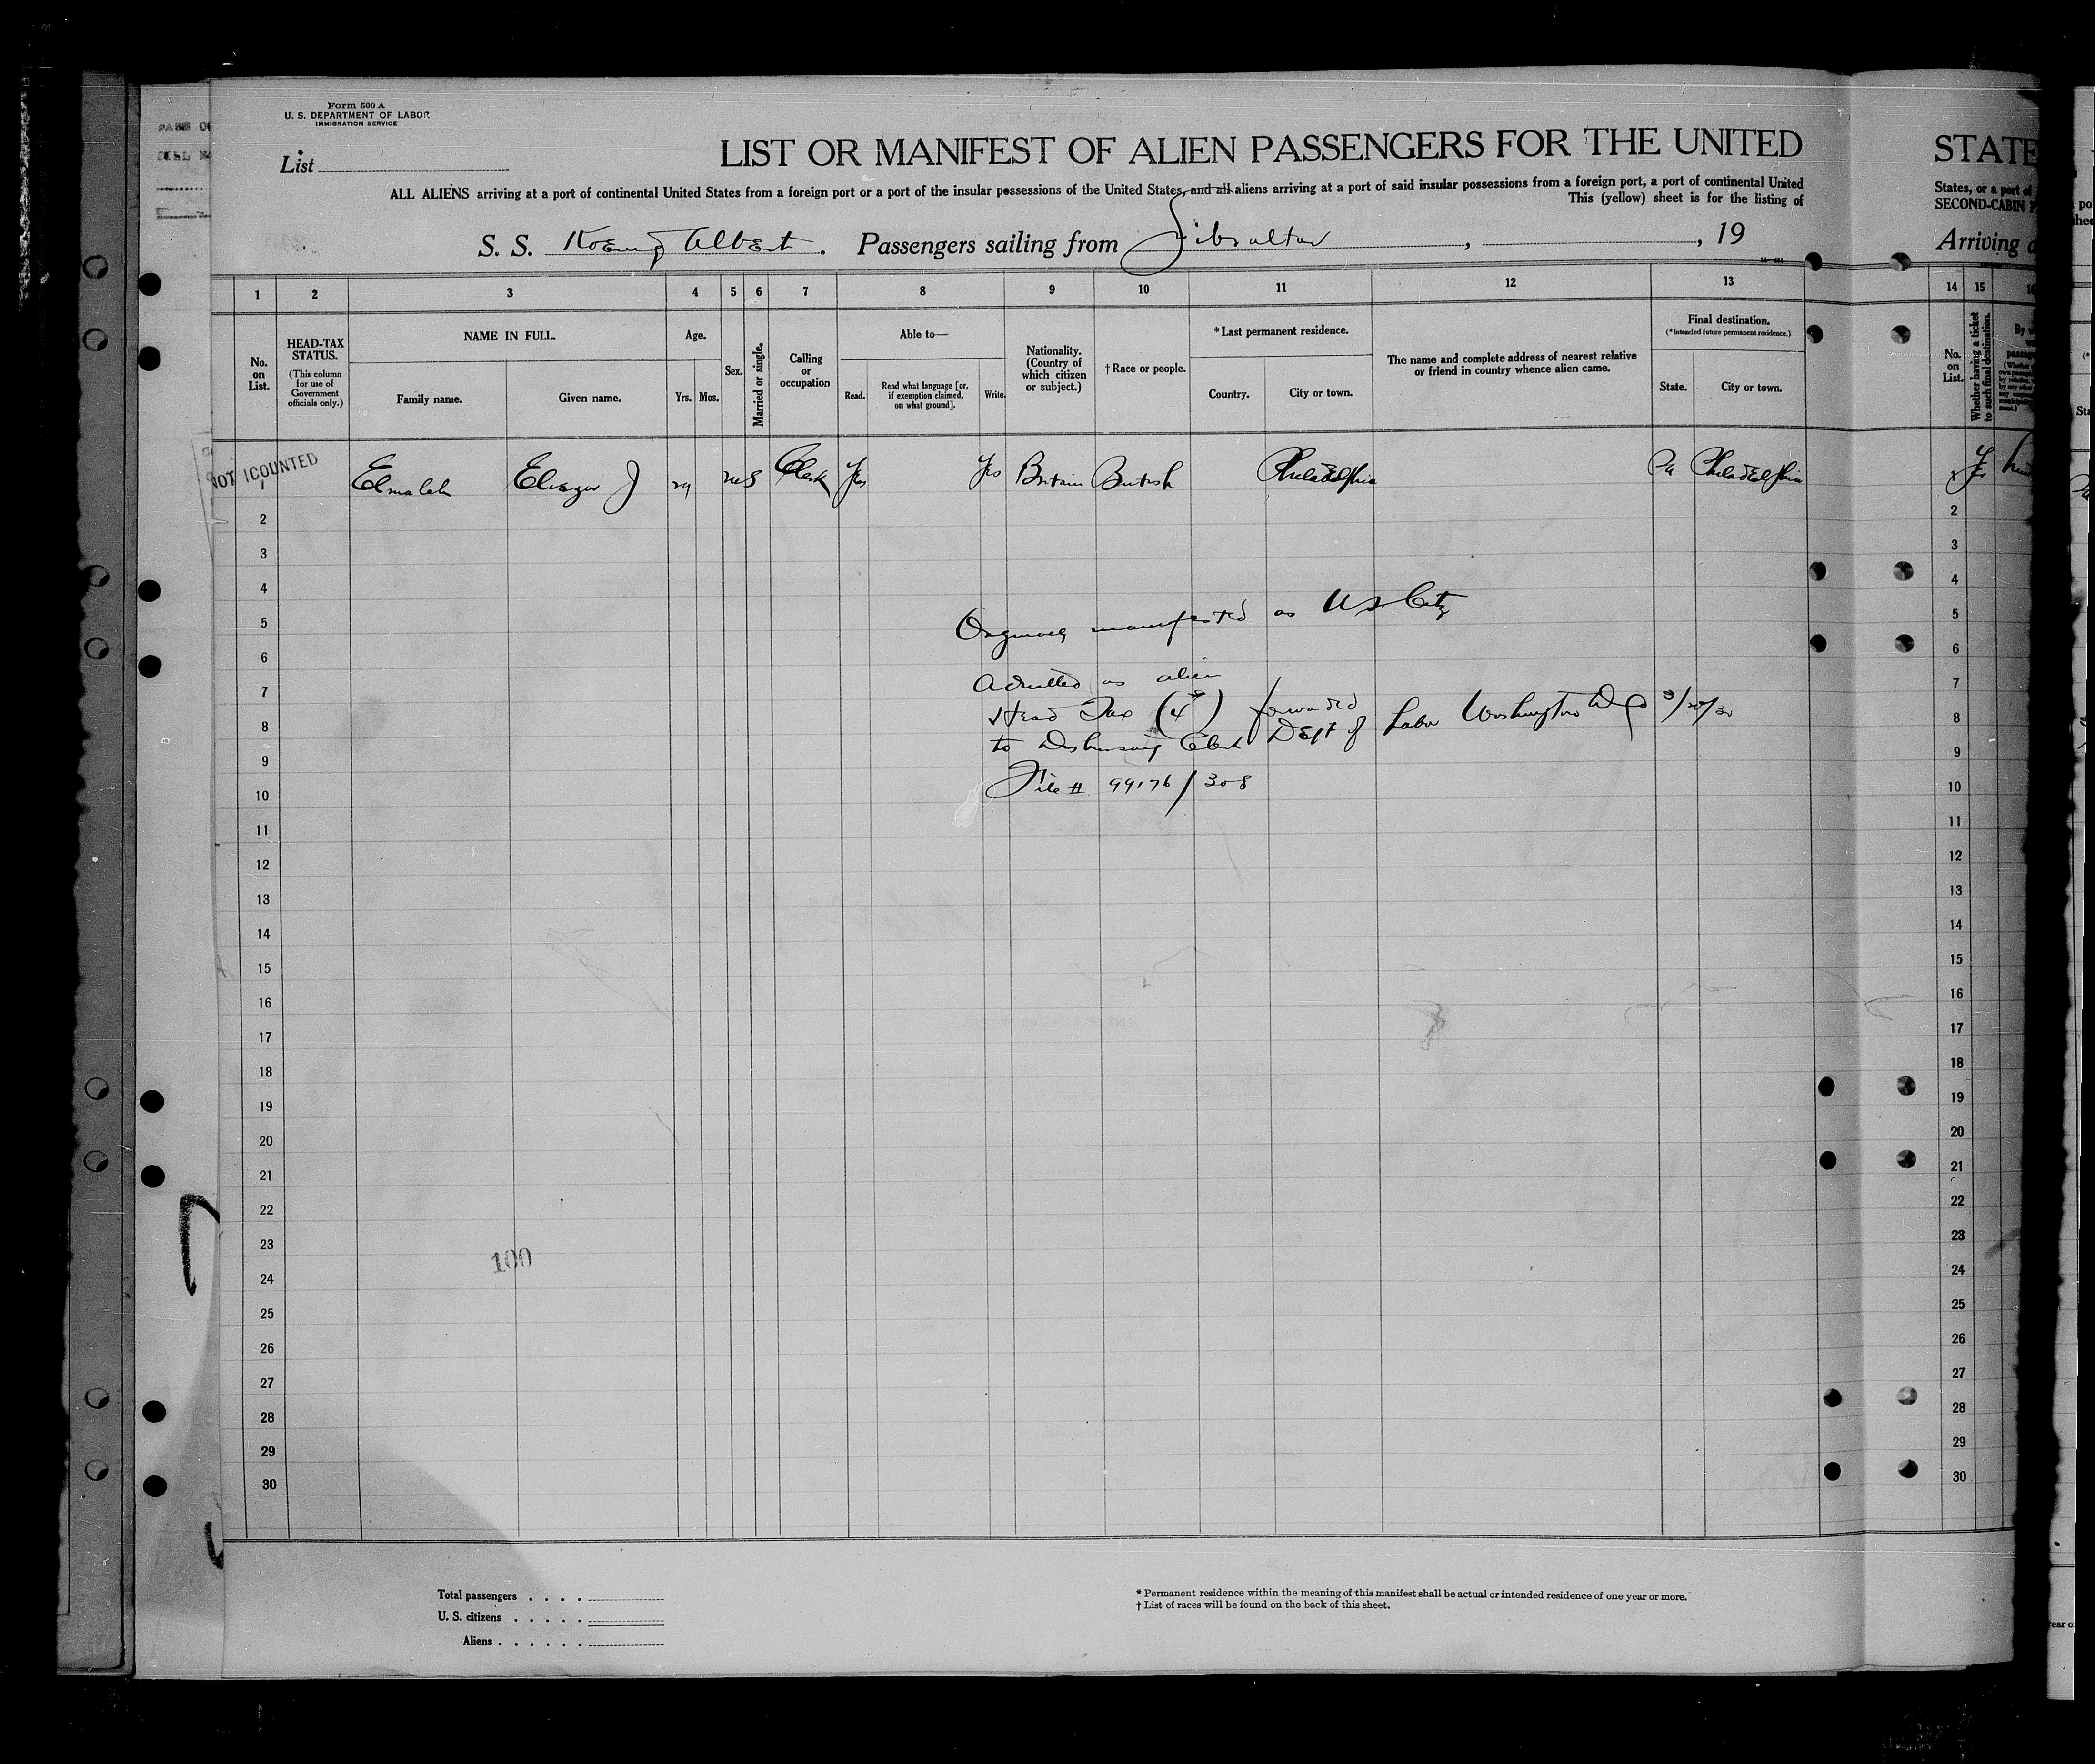 Form 500 A
U. S. DEPARTMENT OF LABOR
IMMIGRATION SERVICE
List
LIST OR MANIFEST OF ALIEN PASSENGERS FOR THE UNITED
ALL ALIENS arriving at a port of continental United States from a foreign port or a port of the insular possessions of the United States, and all aliens arriving at a port of said insular possessions from a foreign port, a port of continental United
This (yellow) sheet is for the listing of
S. S. Koenig Albert. Passengers sailing from Gibraltar, , 19
STATE
States, or a port of
SECOND-CABIN P
Arriving a
1 2 3 4 5 6 7 8 9 10 11 12 13 14 15
No. on List.
HEAD-TAX STATUS.
(This column for use of Government officials only.)
NAME IN FULL.
Family name.
Given name.
Age.
Yrs. Mos.
Sex.
Married or single.
Calling or occupation
Able to—
Read.
Read what language [or, if exemption claimed, on what ground].
Write.
Nationality. (Country of which citizen or subject.)
† Race or people.
*Last permanent residence.
Country.
City or town.
The name and complete address of nearest relative or friend in country whence alien came.
Final destination.
(*Intended future permanent residence.)
State.
City or town.
No. on List.
Whether having a ticket to such final destination.
NOT COUNTED
1 Elmaleh Eliezer J 29 m S Clerk Yes Yes Britain British Philadelphia Pa Philadelphia
2 2
3 3
4 4
5 Originally manifested as U S Citz 5
6 6
7 Admitted as alien 7
8 Head Tax (4) forwarded 8
to Disbursing Clerk Dept of Labor Washington D C
9 9
10 File # 99176/308 10
11 11
12 12
13 13
14 14
15 15
16 16
17 17
18 18
19 19
20 20
21 21
22 22
23 23
100
24 24
25 25
26 26
27 27
28 28
29 29
30 30
Total passengers
U. S. citizens
Aliens
* Permanent residence within the meaning of this manifest shall be actual or intended residence of one year or more.
† List of races will be found on the back of this sheet.